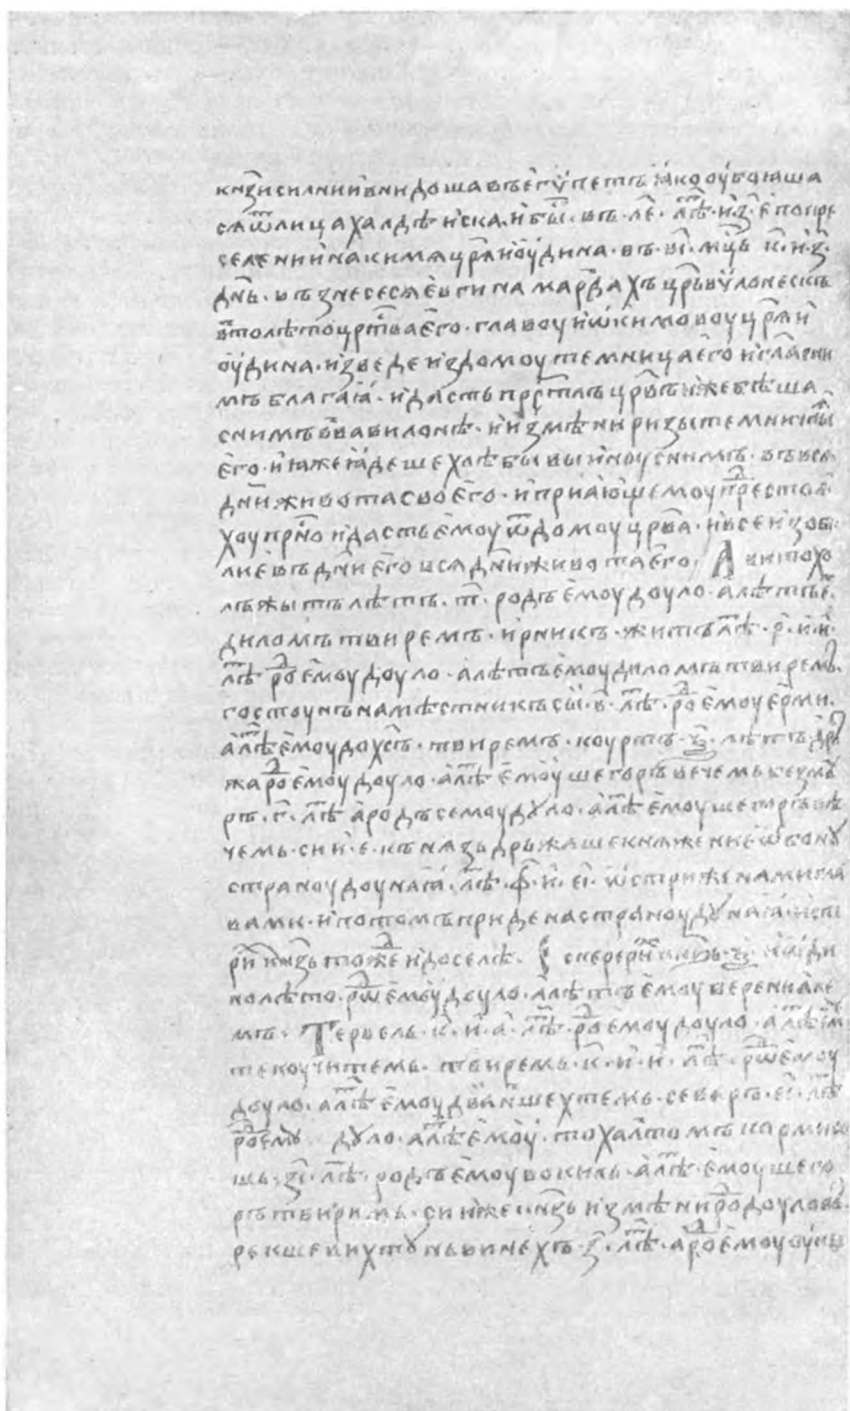 кнѕи силнии и внидоша въ егѵпетъ ꙗко оубоꙗша
сѧ ѿ лица халдѣиска. и бы҇. въ ле҇. л҃ѣ. и. з҃. е по пре
селении иакима цр҃ѧ июдина. въ. в҃і. мц҃ь к҃. и. з҃.
дн҃ь. възнесе сѧ евгина мардахъ цр҃ь вѵлонескъ
въ то лѣто црт҃ва его. главоу иѡкимовоу цр҃ѧ и
оудина. изведе из домоу темница его и гл҃а с ни
мъ благаꙗ. и дасть прст҃лъ цр҃ьскъ иже бѣша
с нимъ въ вавилонѣ. и измѣни ризы темничныѧ
его. и ꙗже ꙗдеше хлѣбы выиноу с нимъ. въ всѧ
дн҃и живота своего. и приающе емоу престоꙗ
хоу прн҃о и даcть емоу ѿ домоу цр҃ва. и все изоби
лие въ дн҃и его всѧ дн҃и живота его. Авитохо
лъ жытъ лѣтъ. т҃. родъ емоу доуло. а лѣтъ е҃.
диломъ твиремъ. ирникъ. житъ лѣ҃т. р҃. и. и҃.
лѣ҃т. ро҃д емоу доуло. а лѣтъ емоу диломъ твиремь.
гостоунъ намѣстникъ сы. в҃. лѣ҃т. ро҃д емоу ерми.
а лѣ҃т емоу дохсъ. твиремъ. коуртъ. ѯ҃. лѣтъ дръ
жа ро҃д емоу доуло. а лѣ҃т емоу шегоръ вечемь безмѣ
ръ. г҃. лѣ҃т а родъ семоу дꙋло. а лѣ҃т емоу шегоръ ве
чемь. сии. е҃. кънѧзь дръжаше кнѧжение ѡбонꙋ
страноу доунаꙗ. лѣ҃т. ф҃. и. е҃і. ѡстрижен ами гла
вами. и потомъ приде на страноу дꙋнаꙗ. испе
рих кнѕь тожде и доселѣ. Есперерих кнѕь. ѯ҃. и а҃ ди
но лѣто. ро҃д емоу доуло. а лѣтъ емоу верени але
мъ. Тервель. к҃. и. а҃. лѣ҃т. ро҃д емоу доуло. а лѣ҃т ем
текоучитемь. твиремь. к҃. и. и҃. лѣ҃т. ро҃д емоу
доуло. а лѣ҃т емоу дваншехтемь. севаръ. е҃і. лѣ҃т
ро҃д емꙋ дꙋло. а лѣ҃т емоу. тохалтомъ кормисо
шь. з҃і. лѣ҃т. родъ емоу вокиль. а лѣ҃т. емоу шего
ръ твиримь. сии же кнѕь измѣни ро҃д доуловъ.
рекше вихтꙋнь винехъ. з҃. лѣ҃т. а ро҃д емоу оукы